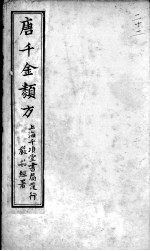 唐千金類方
上海千頃堂書局發行
二十二